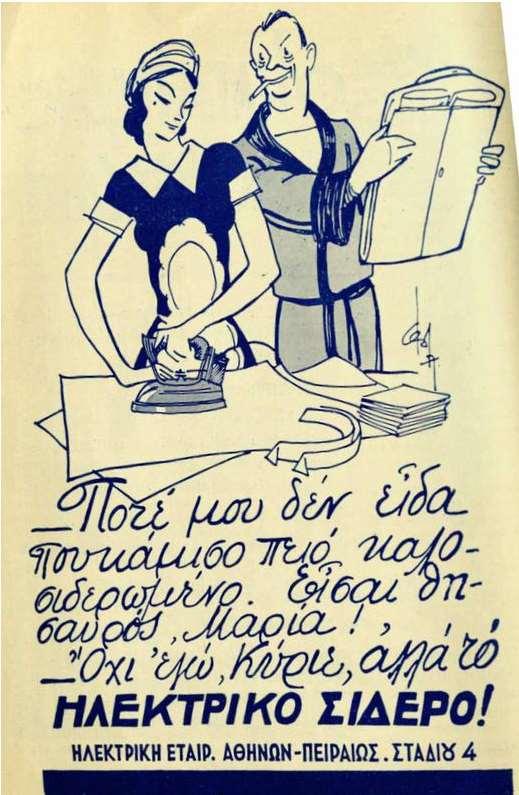 _Ποτέ μου δέν εἶδα
πουκάμισο πειό καλο-
σιδερωμένο. Εἶσαι θη-
σαυρός, Μαρία!
_Ὄχι ἐγώ, Κύριε, ἀλλά τό
ΗΛΕΚΤΡΙΚΟ ΣΙΔΕΡΟ!
ΗΛΕΚΤΡΙΚΗ ΕΤΑΙΡ. ΑΘΗΝΩΝ-ΠΕΙΡΑΙΩΣ. ΣΤΑΔΙȢ 4